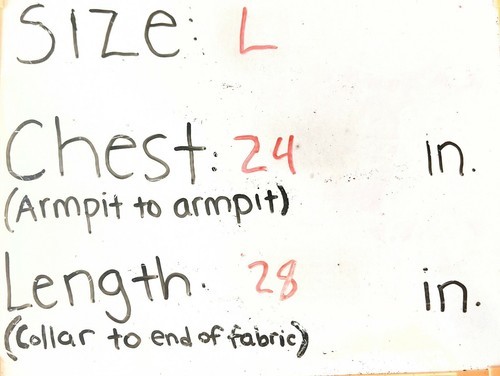 Size: L
Chest: 24 in.
(Armpit to armpit)
Length. 28 in.
(Collar to end of fabric)